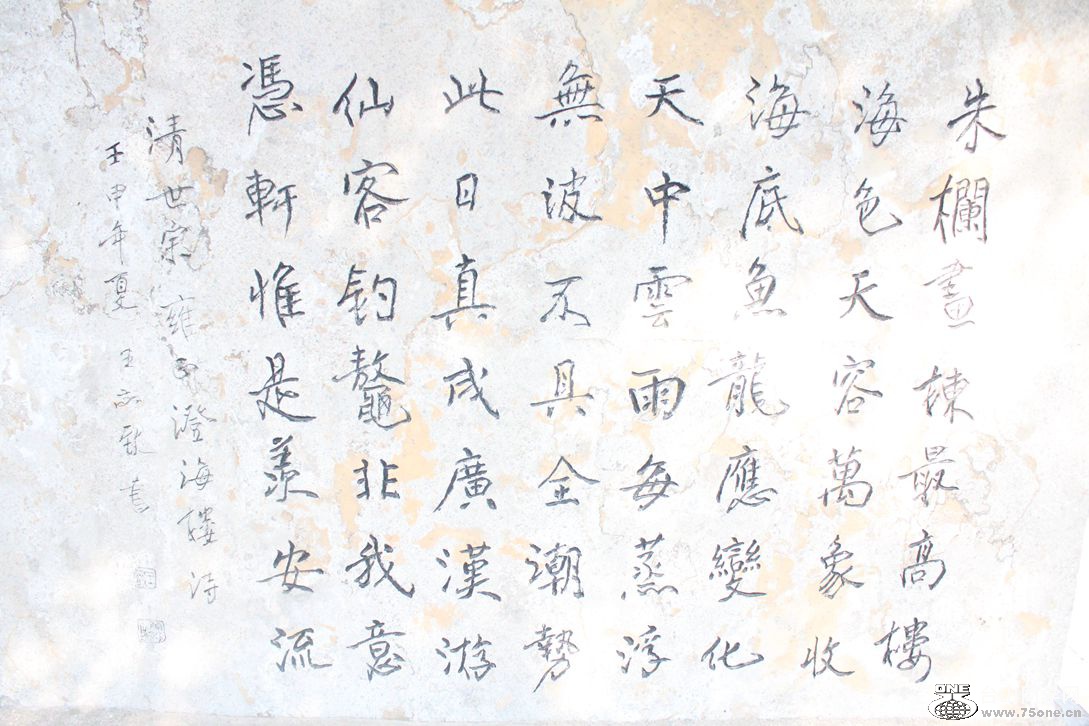 朱欄畫棟最高樓
海色天容萬象收
海底魚龍應變化
天中雲雨每蒸浮
無波不具全潮勢
此日真成廣漢游
仙客釣鼇非我意
憑軒惟是羨安流
清世宗雍正澄海樓詩
壬申年夏 王 書
ONE
www.75one.cn